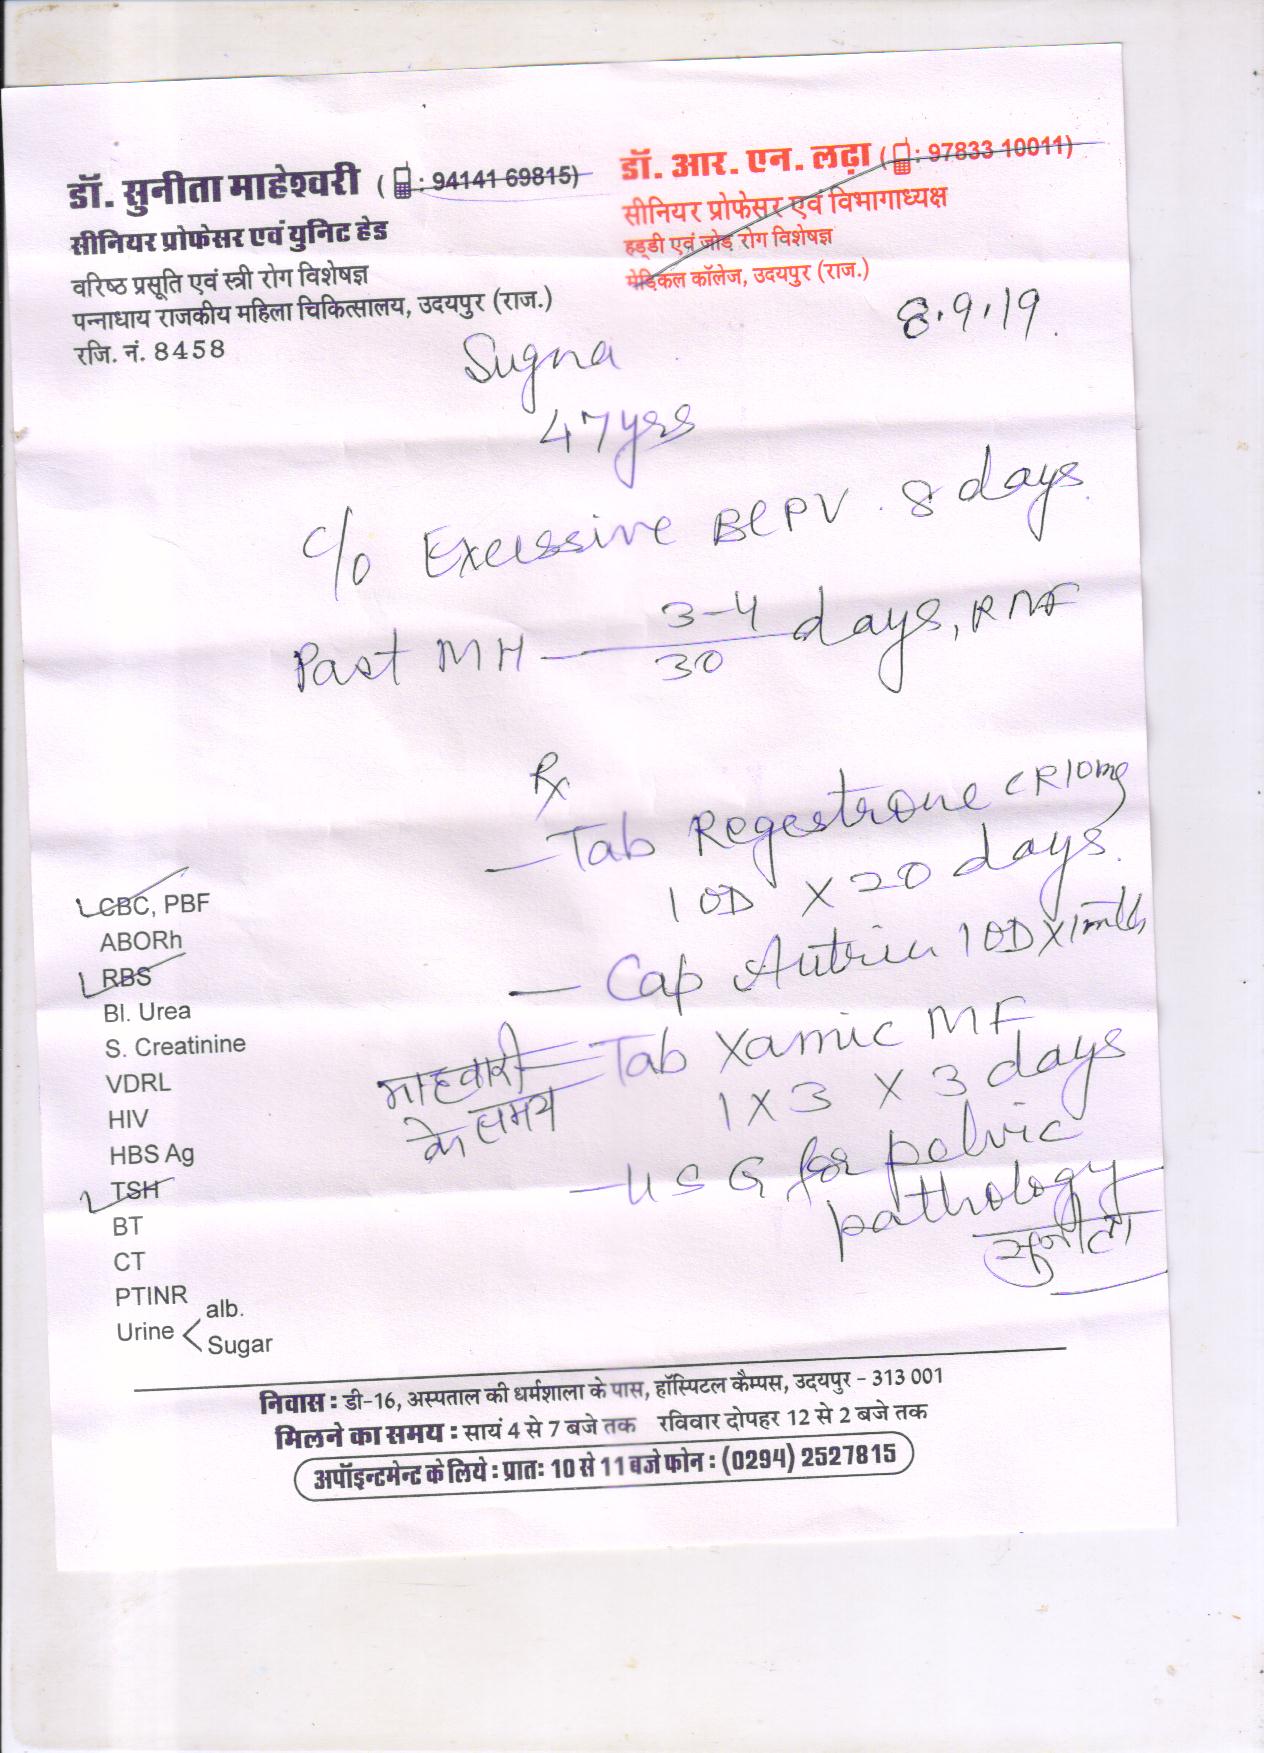 डॉ. सुनीता माहेश्वरी (: 94141 69815)
सीनियर प्रोफेसर एवं युनिट हेड
वरिष्ठ प्रसूति एवं स्त्री रोग विशेषज्ञ
पन्नाधाय राजकीय महिला चिकित्सालय, उदयपुर (राज.)
रजि. नं. 8458
डॉ. आर. एन. लढ़ा (: 97833 10011)
सीनियर प्रोफेसर एवं विभागाध्यक्ष
हड्डी एवं जोड़ रोग विशेषज्ञ
मेडिकल कॉलेज, उदयपुर (राज.)
8.9.19
Sugna
47 yrs
C/o Excessive Bl PV. 8 days
Past MH — 3-4/30 days, RNF
Rx
— Tab Regestrone CR 10mg
1 OD X 20 days.
— Cap Autrin 1 OD X 1 mth
माहवारी के समय — Tab Xamic MF
1 X 3 X 3 days
— USG for pelvic
pathology
सुनीता
CBC, PBF
ABORh
RBS
Bl. Urea
S. Creatinine
VDRL
HIV
HBS Ag
TSH
BT
CT
PTINR
Urine < alb.
Sugar
निवास : डी-16, अस्पताल की धर्मशाला के पास, हॉस्पिटल कैम्पस, उदयपुर - 313 001
मिलने का समय : सायं 4 से 7 बजे तक रविवार दोपहर 12 से 2 बजे तक
अपॉइन्टमेन्ट के लिये : प्रातः 10 से 11 बजे फोन : (0294) 2527815